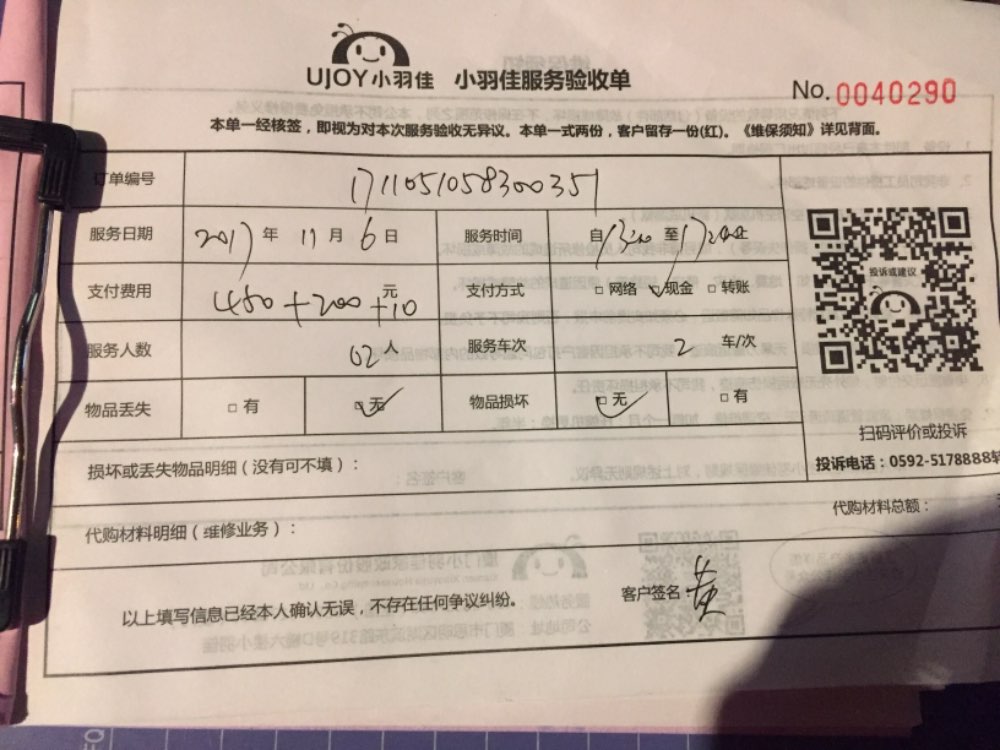 UJOY小羽佳 小羽佳服务验收单
No. 0040290
本单一经核签，即视为对本次服务验收无异议。本单一式两份，客户留存一份(红)。《维保须知》详见背面。
订单编号 1711051058300351
服务日期 2017年 11月 6日 服务时间 自 至 止
支付费用 450+200+10 元 支付方式 □网络 □现金 □转账
投诉或建议
服务人数 02人 服务车次 2 车/次
物品丢失 □有 □无 物品损坏 □无 □有
扫码评价或投诉
投诉电话：0592-5178888转
损坏或丢失物品明细（没有可不填）：
代购材料明细（维修业务）： 代购材料总额：
以上填写信息已经本人确认无误，不存在任何争议纠纷。 客户签名： 黄